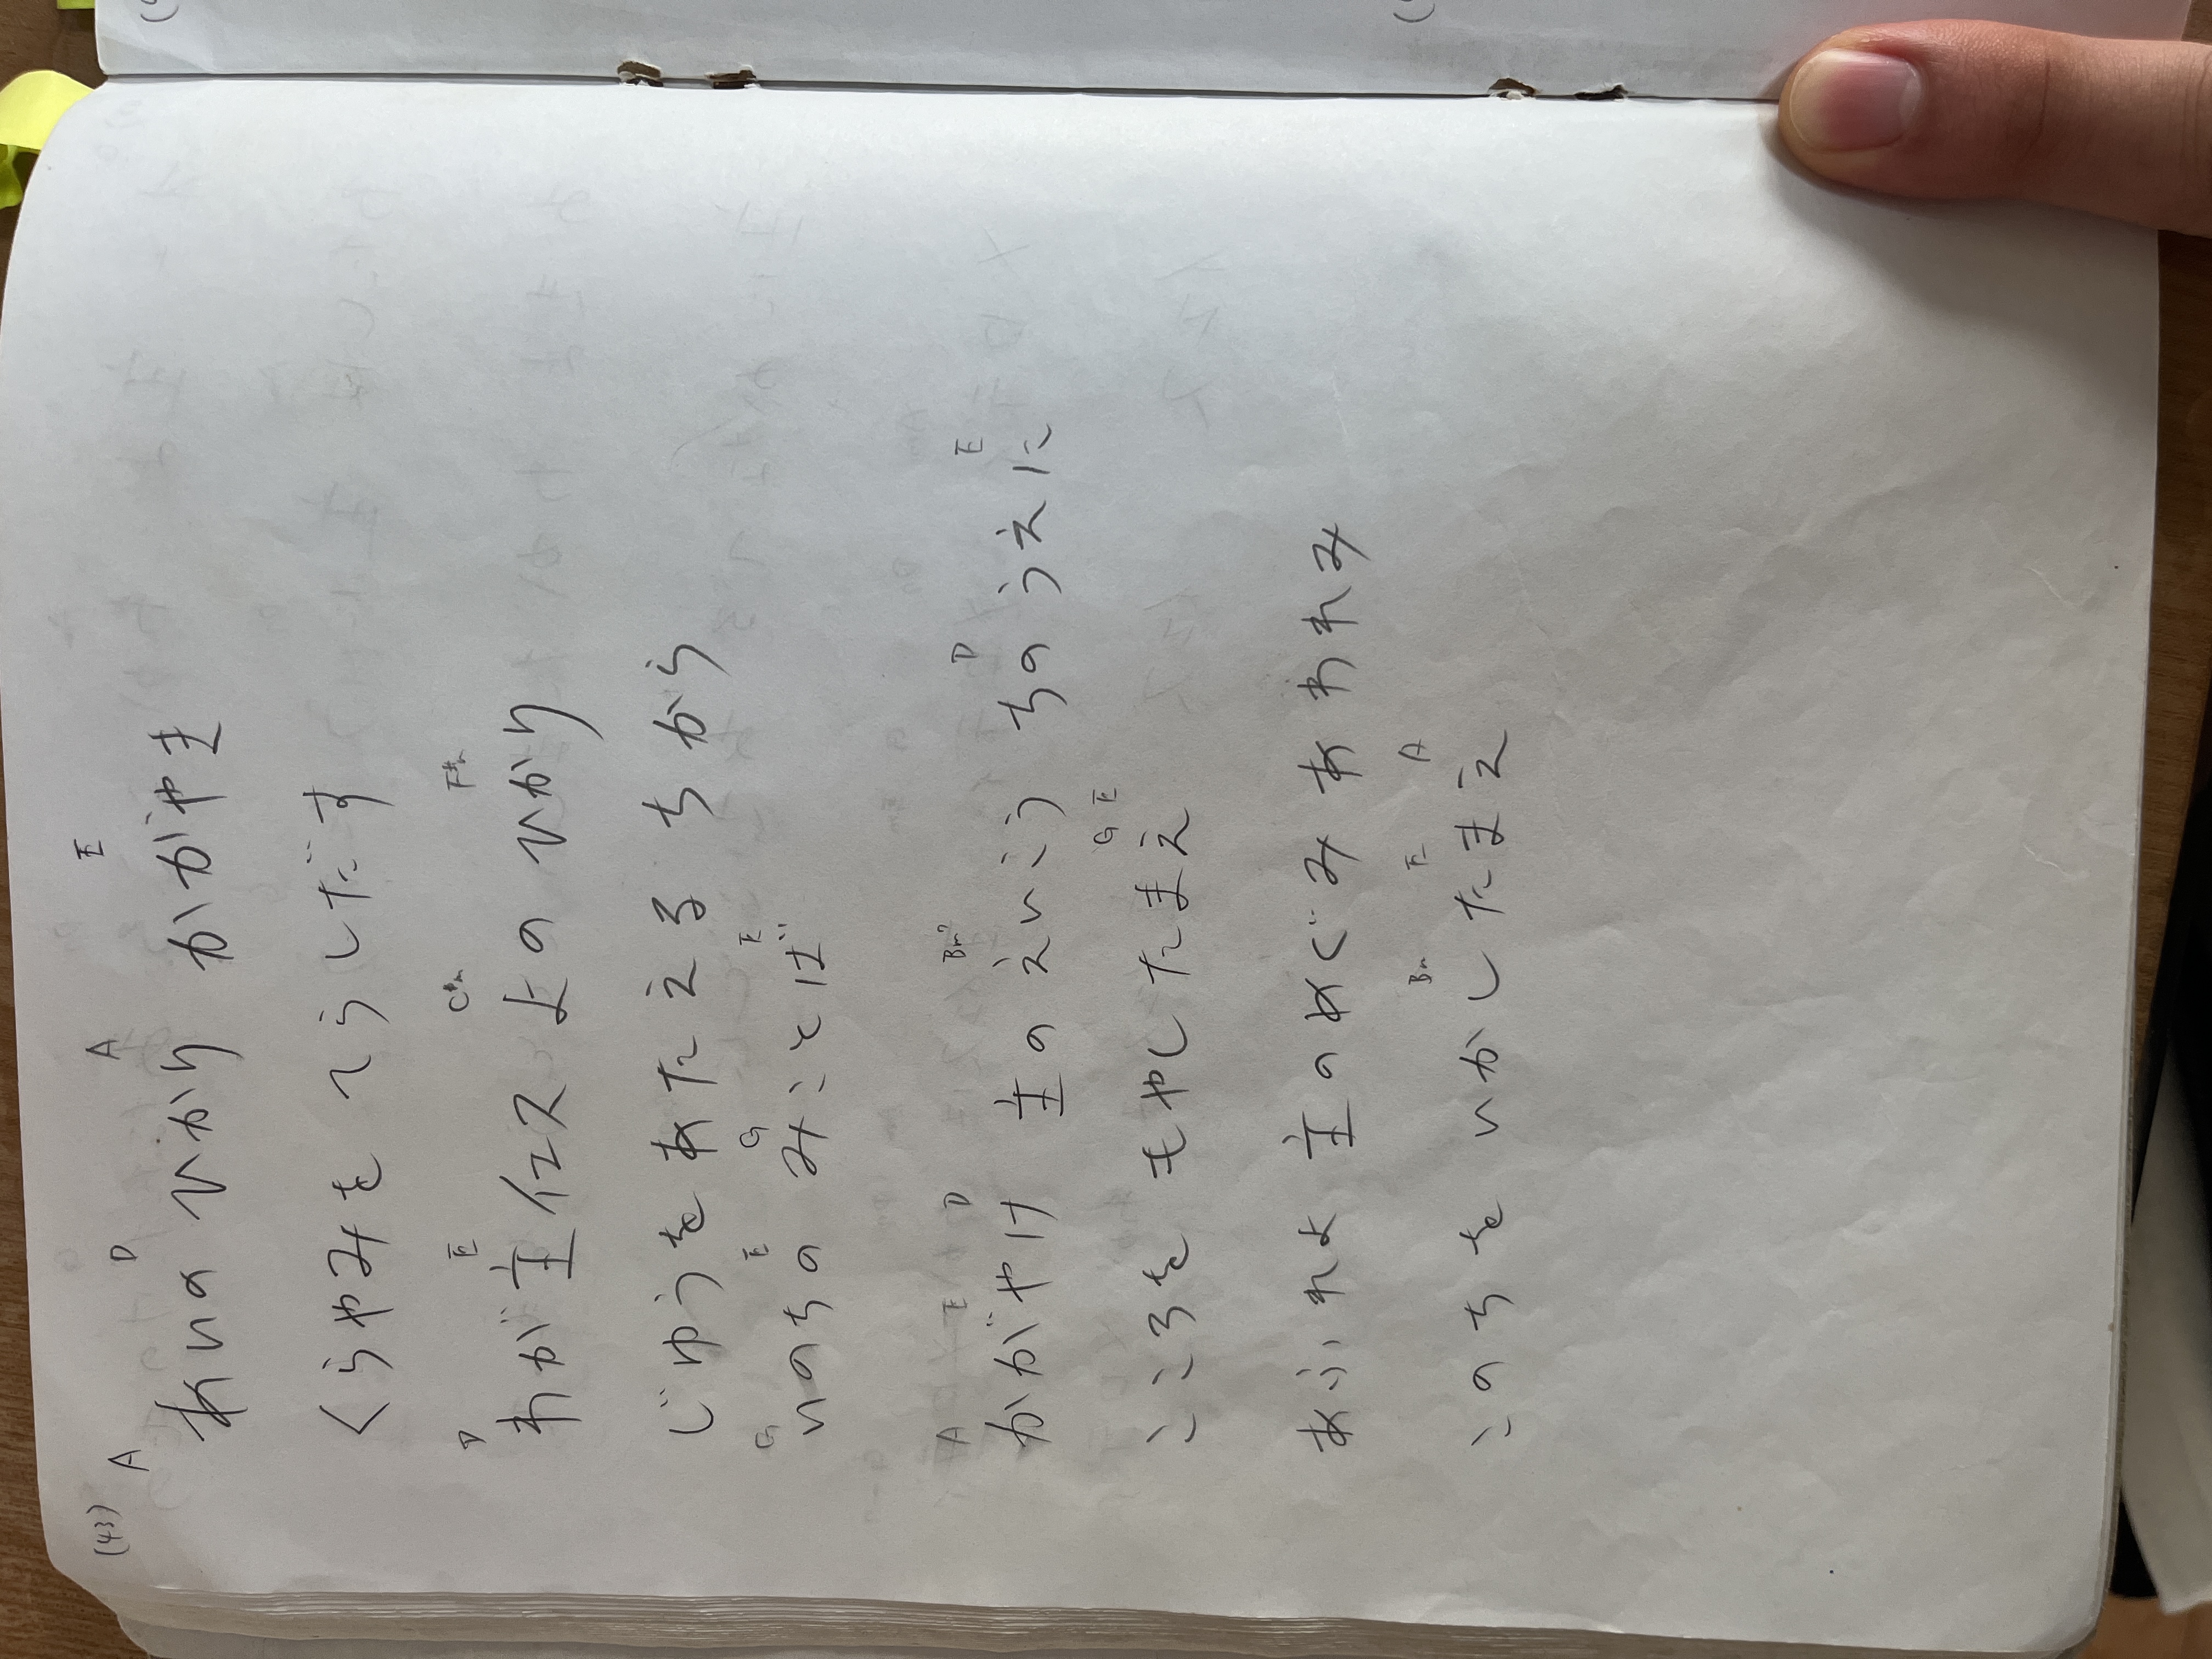 (43)
A D A E
あいの ひかり かがやき
くらやみを てらしだす
D E C#m F#m
わが主イエス よの ひかり
じゆうを あたえる ちから
G E G E
いのちの みことば
A E D Bm7 D E
かがやけ 主の えいこう ちの うえに
G E
こころを もやしたまえ
あふれよ 主の めぐみ あわれみ
Bm E A
このちを いかしたまえ